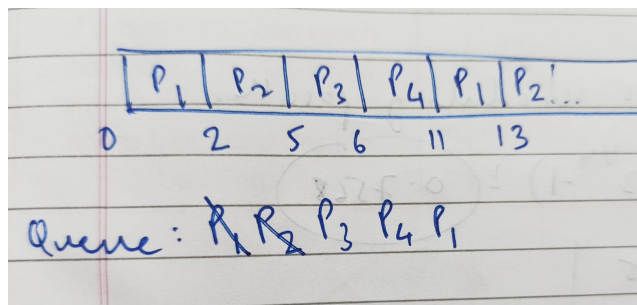 P1 | P2 | P3 | P4 | P1 | P2 ...
0 2 5 6 11 13
Queue: P1 P2 P3 P4 P1